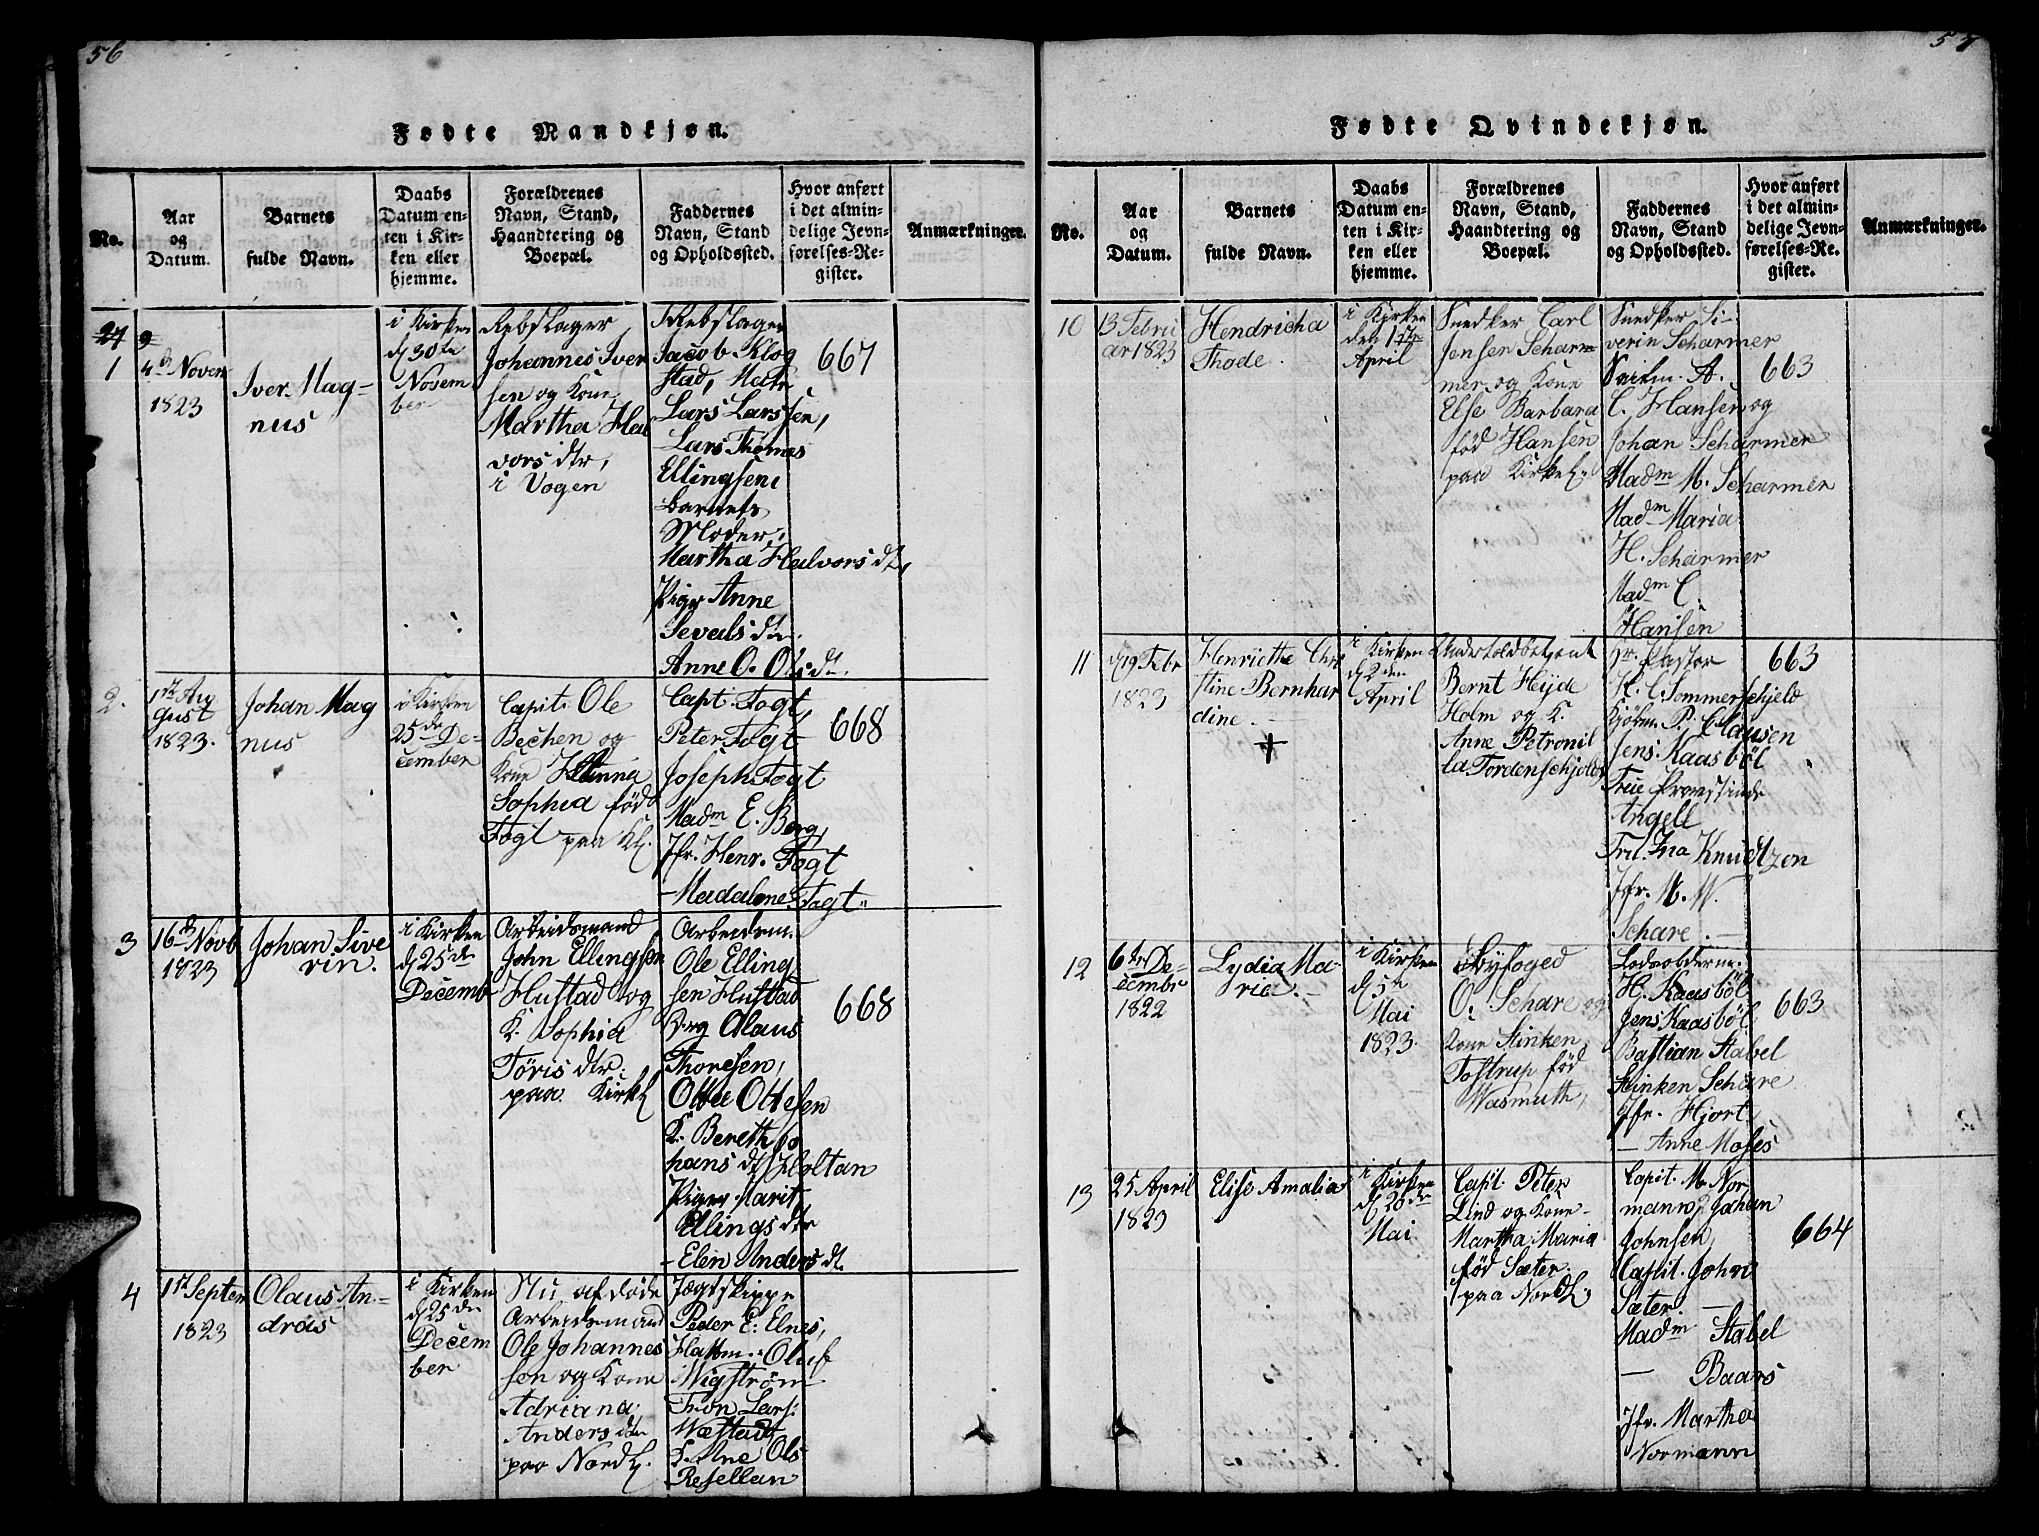 56
Fødte Mandkjøn.
No.
Aar
og
Datum.
Barnets
fulde Navn.
Daabs
Datum en-
ten i Kir-
ken eller
hjemme.
Forældrenes
Navn, Stand,
Haandtering og
Boepæl.
Faddernes
Navn, Stand
og Opholdssted.
Hvor anført
i det almin-
delige Jevn-
førelses-Re-
gister.
Anmærkninger.
1
4d Novem
1823
Iver Mag-
nus
i Kirken
d 30te
Novem
ber
Rebslager
Johannes Iver
sen og Kone
Martha Hal
vors dtr,
i Vogen
Rebslager
Jacob Klog
stad, Matr
Lars Larssen,
Lars Thomas
Ellingsen
Barnets
Moder,
Martha Halvors dt,
Pige Anne
Sevals dtr
Anne O. Ols dt.
667
2.
1ste Au
gust
1823.
Johan Mag
nus
i Kirken
25de De-
cember
Capit. Ole
Bechen og
Kone Hanna
Sophia fød
Fogt paa Kl.
Capt. Fogt,
Peter Fogt
Joseph Fogt
Madm E. Berg,
Jfr. Henr. Fogt
- Madalene Fogt
668
3
16d Novb
1823
Johan Sive
rin.
i Kirken
d 25de
Decemb
Arbeidsmand
John Ellingsen
Hustad og
K. Sophia
Töris dtr.
paa Kirkl
Arbeidsm.
Ole Elling
sen Hustad
Olaus
Thoresen,
Ottee Ottesen
K. Bereth Jo
hans dt Holtan
Pigen Marit
Ellings dtr
- Elen Anders dt.
668
4
1ste Septem
1823
Olaus An-
dreas
i Kirken
d 25de
Decem
ber
Nu afdöde
Arbeidsmand
Ole Johannes
sen og Kone
Adriana
Anders dtr
paa Nordl.
Jægtskippr
Peder E. Elnes,
Hattm. Oluf
Wigström
Tron Lars.
Wæstad
P. Ane Ols
Resellan
57
Fødte Qvindekjøn.
No.
Aar
og
Datum.
Barnets
fulde Navn.
Daabs
Datum en-
ten i Kir-
ken eller
hjemme.
Forældrenes
Navn, Stand,
Haandtering og
Boepæl.
Faddernes
Navn, Stand
og Opholdssted.
Hvor anført
i det almin-
delige Jevn-
førelses-Re-
gister.
Anmærkninger.
10
13 Febru
ar 1823
Hendricha
Thode
i Kirken
den 1ste
April
Snedker Carl
Jensen Scharm
mer og Kone
Else Barbara
fød Hansen
paa Kirkel.
Snedker Si-
verin Scharmer
A.
C. Hansen og
Johan Scharmer
Madm M. Scharmer
Madm Maria
H. Scharmer
Madm C.
Hansen
663
11
d 19 Febr
1823
Henriethe Chri
stine Bernhar
dine.
+
i Kirken
d 2den
April
Bernt Heyde
Holm og K.
Anne Petronil
la Tordenschjold
Hr. Pastor
H. C. Sommerschjeld
Kjöbm. P. Clausen
Jens Kaasböl
Frue Provstinde
Angell
Fru. Ina Knudtzon
Jfr. M. W.
Schare.
663
12
6te De-
cembr
1822
Lydia Ma-
rie.
i Kirken
d 5te
Mai
1823.
Byfoged
O. Schare og
Kone Stinken
Tostrup fød
Wasmuth,
Lodsolderm.
H. Kaasböl
Jens Kaasböl
Bastian Stabel
Stinken Schare
Jfr. Hjort
- Anne Moses
663
13
25 April
1823
Elise Amalia
i Kirken
d 26de
Mai
Capit. Peter
Lind og Kone
Martha Maria
fød Sæter.
paa Nordl.
Capit. M. Nor
mann, Johan
Johnsen,
Capit. John
Sæter.
Madm Stabel
- Baars
Jfr. Martha
Normann
664